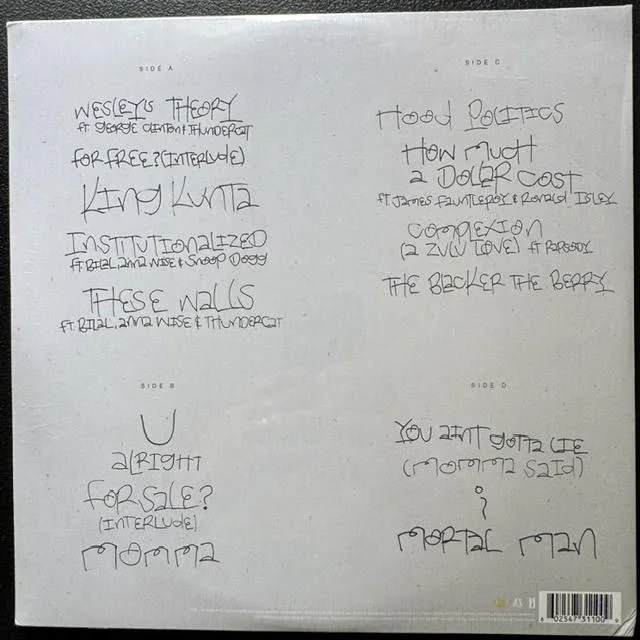 SIDE A
WESLEY'S THEORY
ft GEORGE CLINTON & THUNDERCAT
FOR FREE? (INTERLUDE)
KING KUNTA
INSTITUTIONALIZED
ft BILAL, anna WISE & SNOOP DOGG
THESE WALLS
FT. BILAL, anna WISE & THUNDERCAT
SIDE B
U
alRIGHT
FOR SALE?
(INTERLUDE)
MOMMA
SIDE C
HOOD POLITICS
HOW MUCH
a DOLLAR COST
ft JAMES FAUNTLEROY & RONALD ISLEY
COMPLEXION
(a ZULU LOVE) ft RAPSODY
THE BLACKER THE BERRY
SIDE D
YOU aINT GOTTA LIE
(MOMMA SAID)
i
MORTAL MAN
6 02547 31100 9